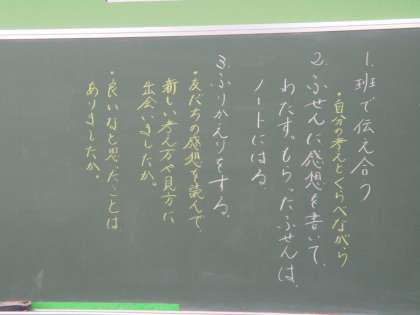 1.班で伝え合う
・自分の考えとくらべながら
2.ふせんに感想を書いて、
わたす。もらったふせんは、
ノートにはる。
3.ふりかえりをする。
・友だちの感想を読んで、
新しい考え方や見方に
出会いましたか。
・良いなと思ったことは
ありましたか。